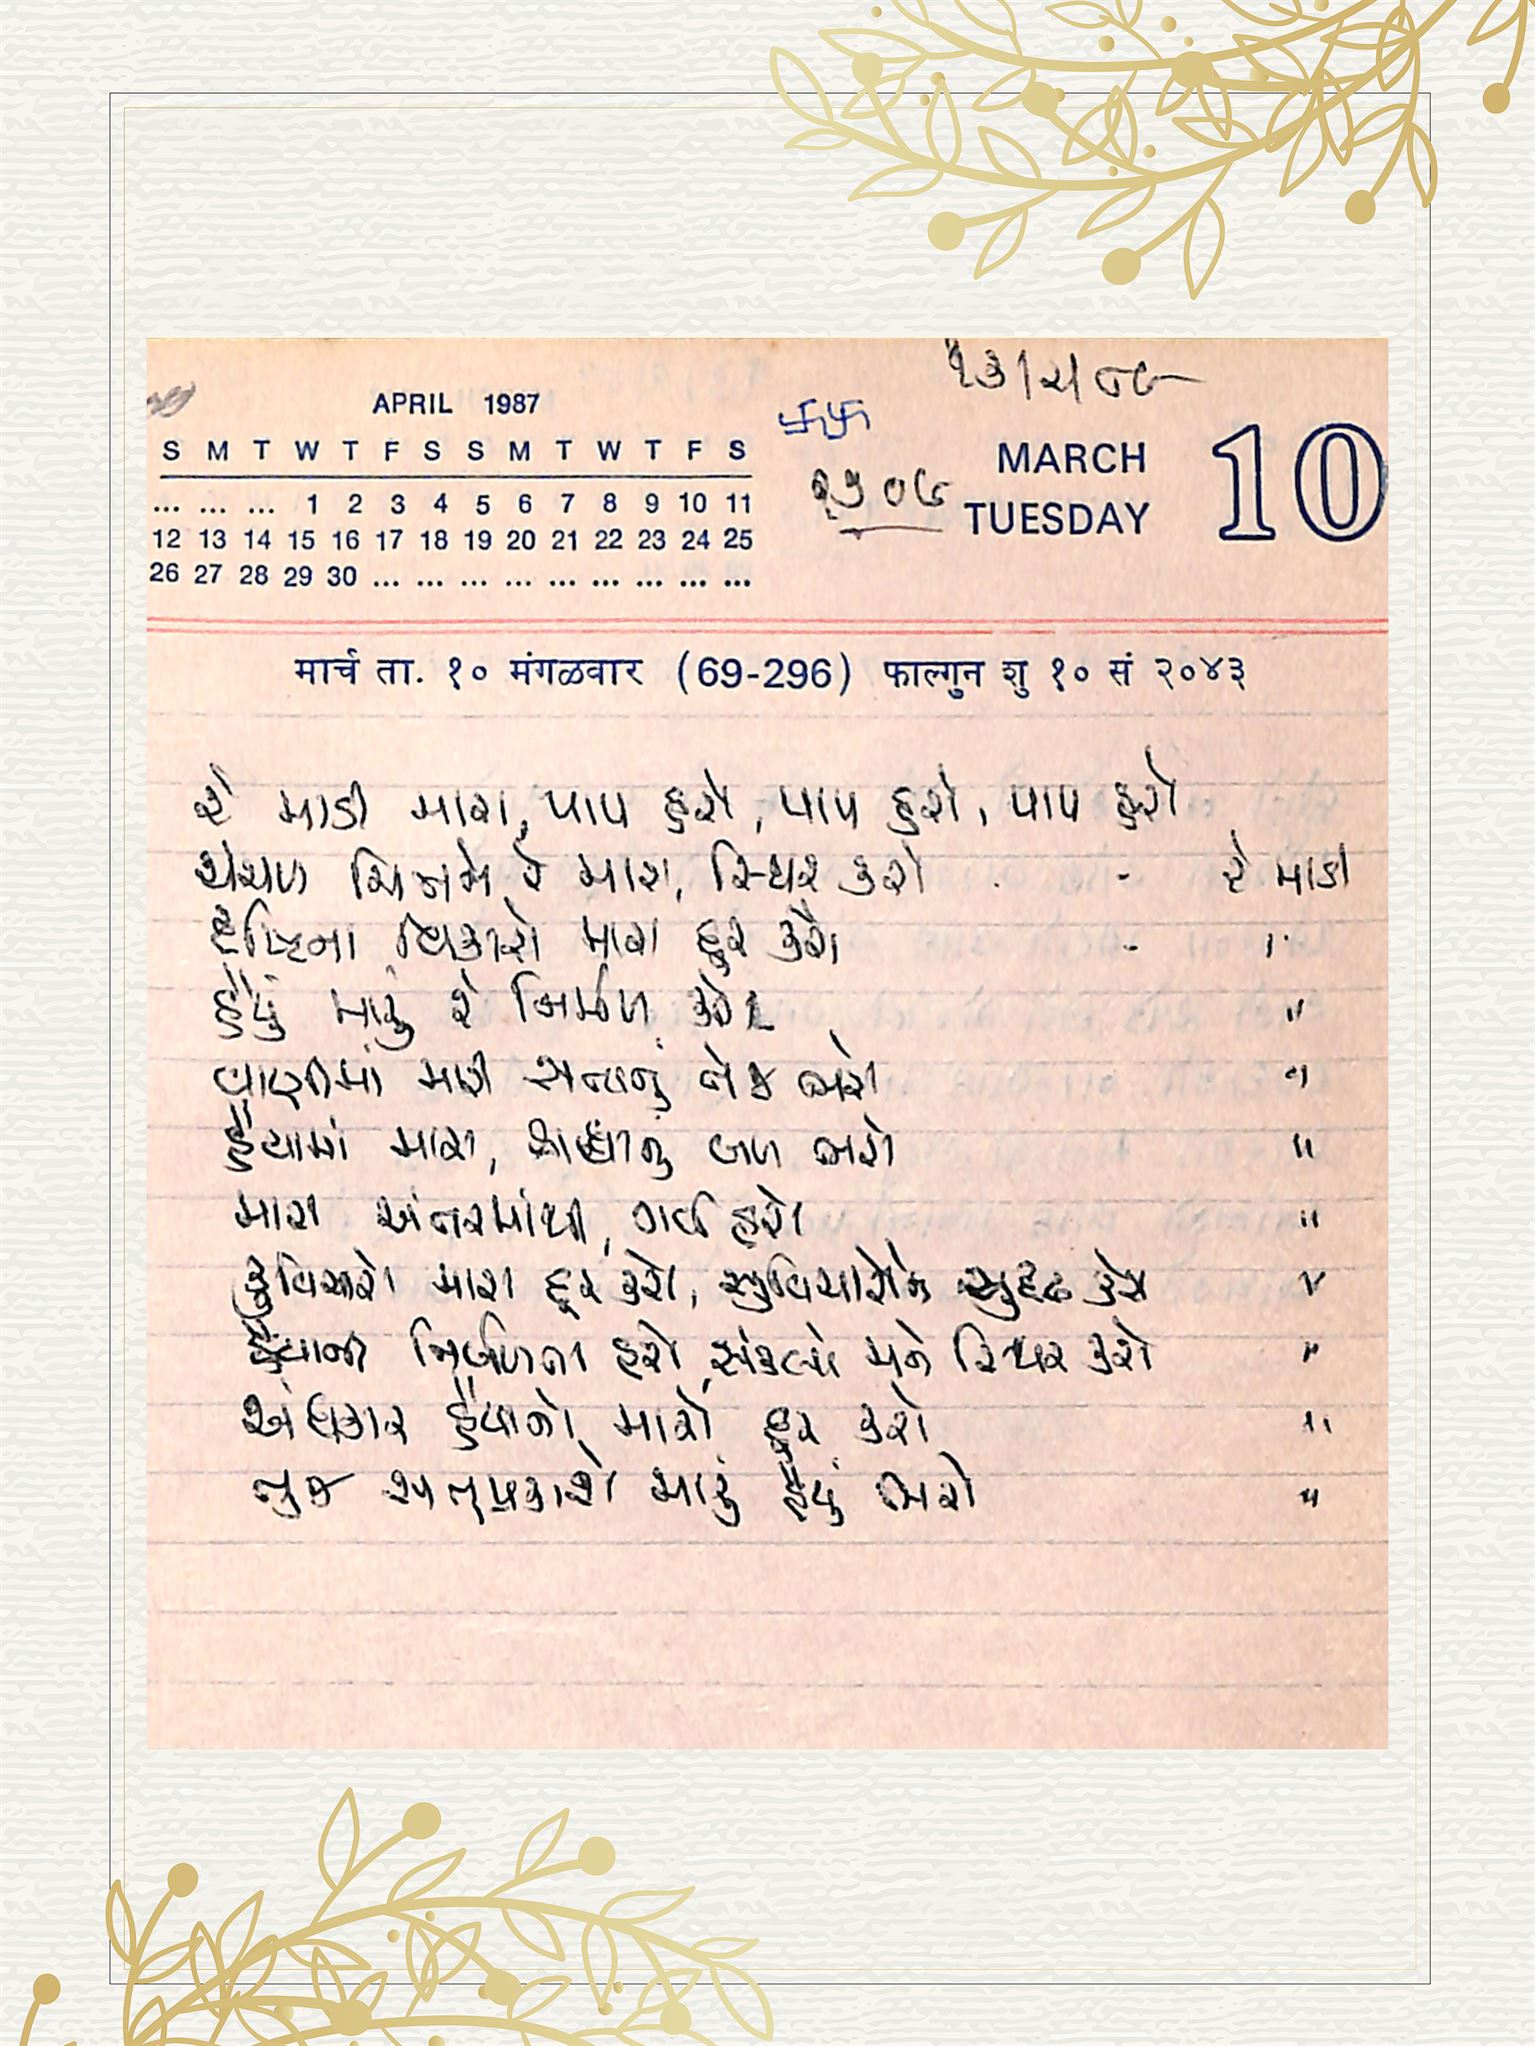 ૨૩/૨/૮૯
APRIL 1987
S M T W T F S S M T W T F S
... ... ... 1 2 3 4 5 6 7 8 9 10 11
12 13 14 15 16 17 18 19 20 21 22 23 24 25
26 27 28 29 30 ... ... ... ... ... ... ... ... ...
卐卐
૨૩૦૯
MARCH 10
TUESDAY
मार्च ता. १० मंगळवार (69-296) फाल्गुन शु १० सं २०४३
રે માડી મારા, પાપ હરો, પાપ હરો, પાપ હરો
ચંચળ ચિત્તને રે મારા, સ્થિર કરો . - રે માડી
દૃષ્ટિના વિકારો મારા દૂર કરો - "
હૈયું મારું રે નિર્મળ કરો "
વાણીમાં મારી સત્યનું તેજ ભરો "
હૈયામાં મારા, શ્રદ્ધાનું બળ ભરો "
મારા અંતરમાંથી, ગર્વ હરો "
કુવિચારો મારા દૂર કરો, સુવિચારોને સુદૃઢ કરો "
હૈયાની નિર્બળતા હરો, સંકલ્પે મને સ્થિર કરો "
અંધકાર હૈયાનો મારો દૂર કરો "
તુજ સત્પ્રકાશે મારું હૈયું ભરો "